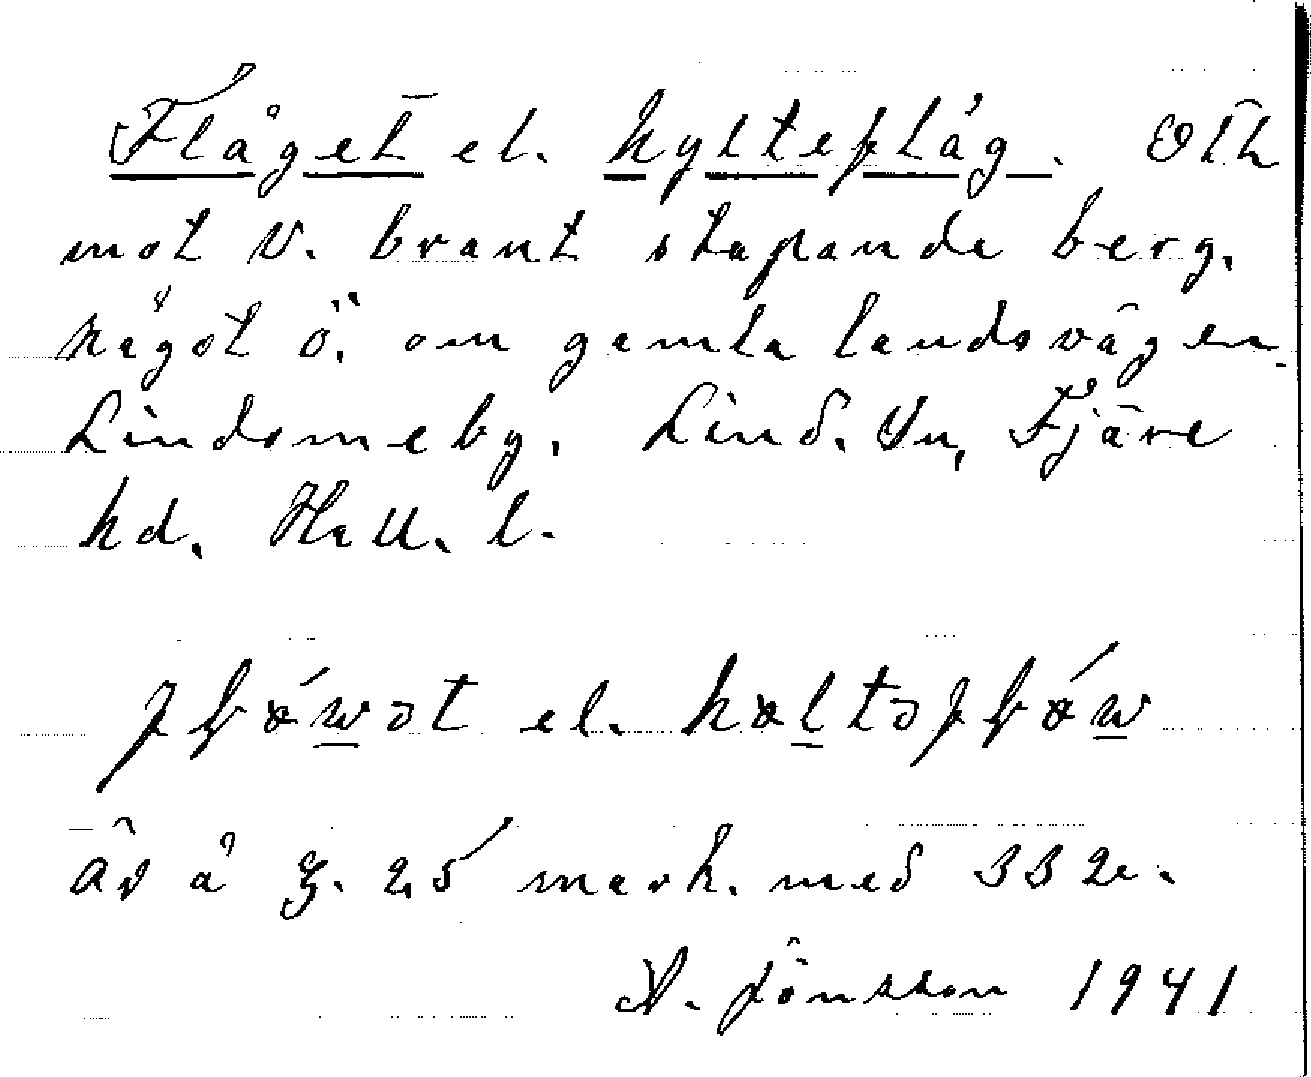 Flåget el. Kylteflåg. Oth
mot V. brant stupande berg,
något ö. om gamla landsvägen
Lindomeby. Lind. Sn, Fjäre
hd. Hall. l.
el.
Är å z. 25 mark. med 332.
A. Jönsson 1941